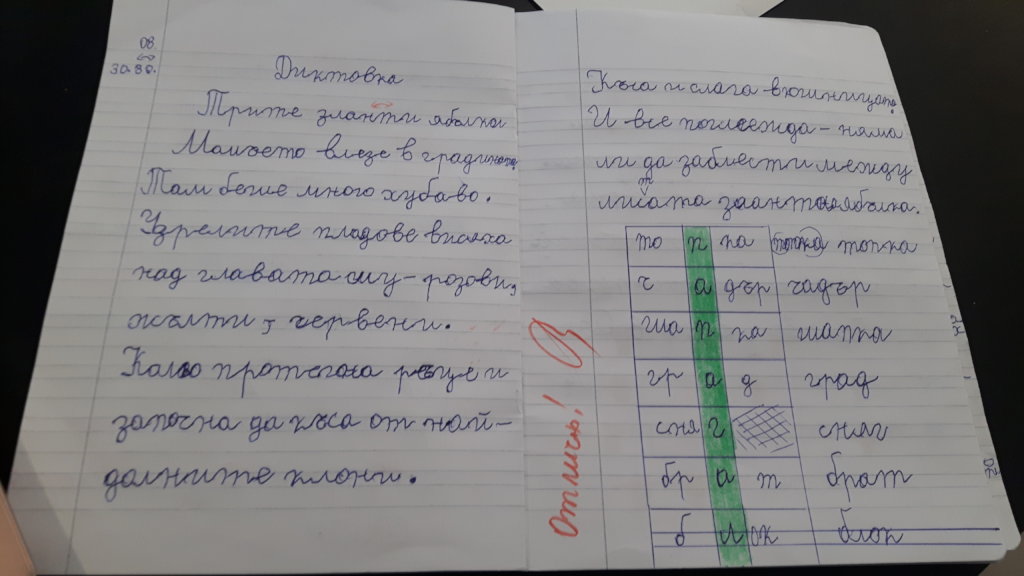 08.
30.80.
Диктовка
Трите златни ябълки
Момчето влезе в градината.
Там беше много хубаво.
Узрелите плодове висяха
над главата му - розови,
жълти, червени.
Кольо протегна ръце и
започна да къса от най-
долните клони.
Къса и слага в кошницата.
И все поглежда - няма
ли да заблести между
листата златна ябълка.
то п ка топка топка
ч а дър чадър
ша п ка шапка
гр а д град
сня г сняг
бр а т брат
б л ок блок
Отличен!